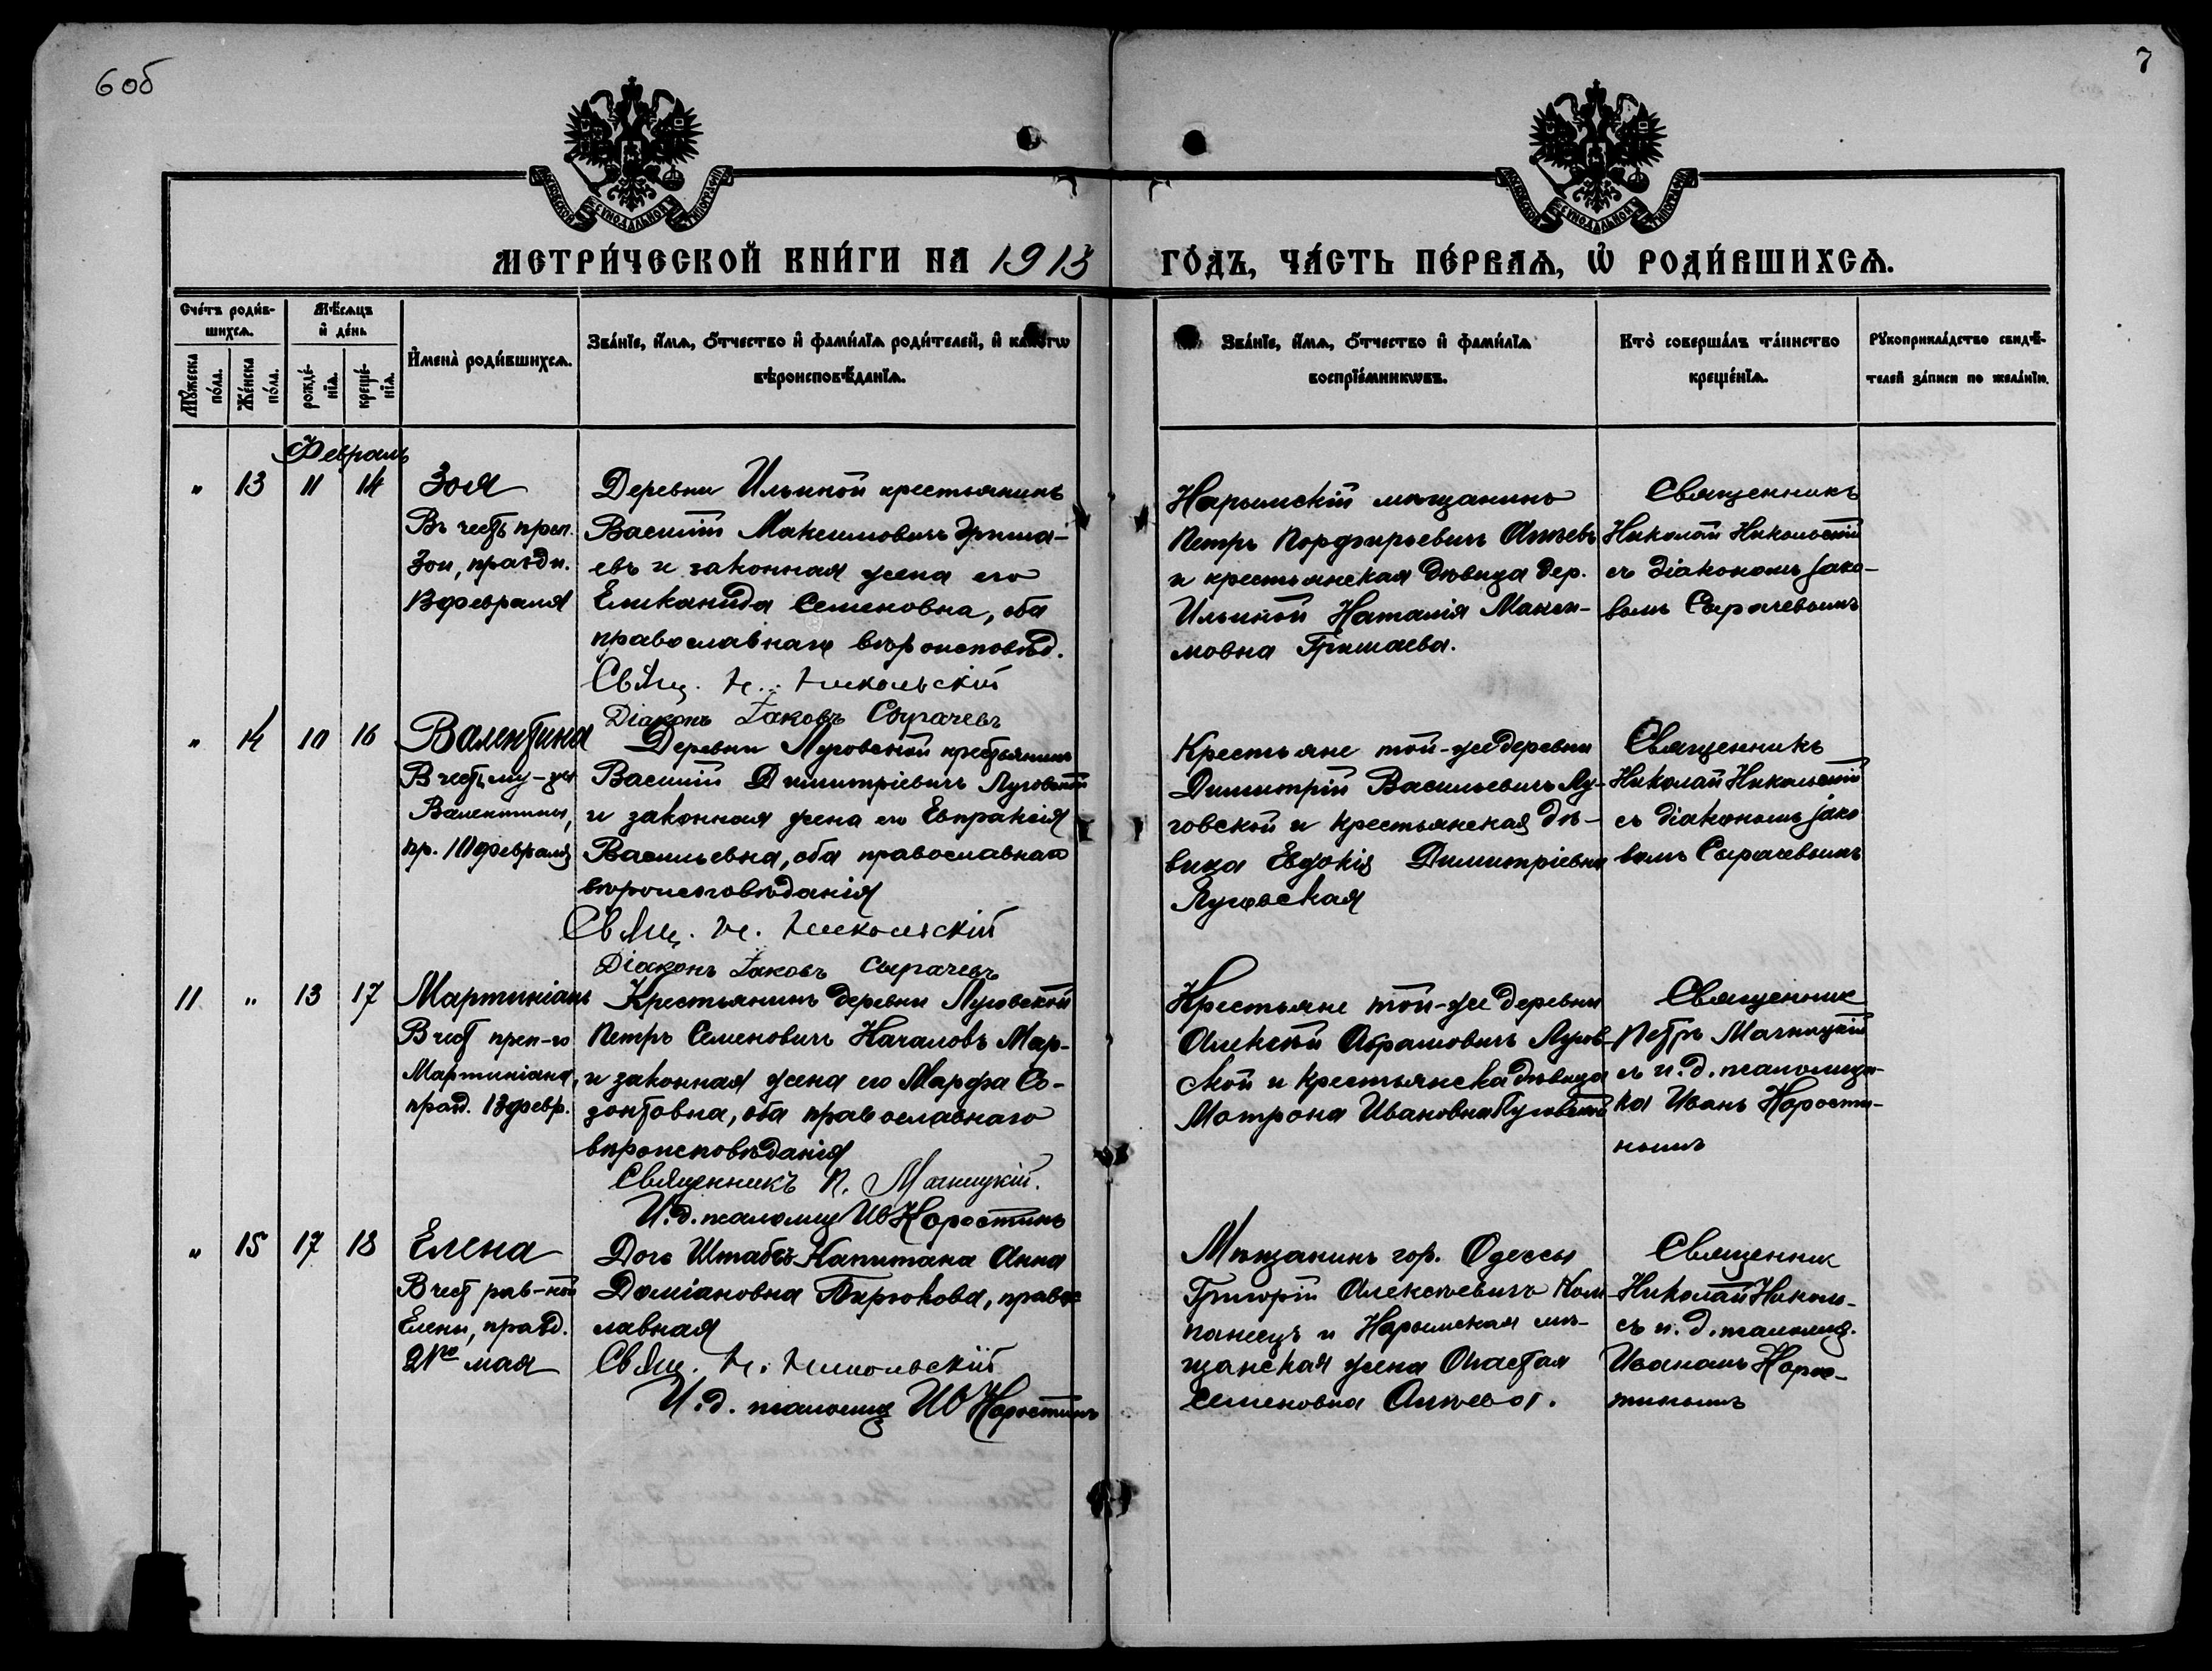 6 об
7
МОСКОВСКОЙ СѴНОДАЛЬНОЙ ТИПОГРАФІИ
МОСКОВСКОЙ СѴНОДАЛЬНОЙ ТИПОГРАФІИ
МЕТРИ́ЧЕСКОЙ КНИ́ГИ НА 1913
ГО́ДЪ, ЧА́СТЬ ПЕ́РВАѦ, Ѡ҆ РОДИ́ВШИХСѦ.
Сче́тъ роди́в-
шихсѧ.
Мѣ́сѧцъ
и҆ де́нь
Мꙋ́жеска
по́ла.
Же́нска
по́ла.
рожде́-
нїѧ.
креще́-
нїѧ.
И҆мена̀ роди́вшихсѧ.
Зва́нїе, и҆́мѧ, ѻ҆́тчество и҆ фами́лїѧ роди́телей, и҆ како́гѡ
вѣроисповѣ́данїѧ.
Зва́нїе, и҆́мѧ, ѻ҆́тчество и҆ фами́лїѧ
воспрїе́мникѡвъ.
Кто̀ соверша́лъ та́инство
креще́нїѧ.
Рꙋкоприкла́дство свидѣ́-
телей за́писи по жела́нїю.
Февраль
" 13 11 14 Зоя
Въ честь преп.
Зои, праздн.
13 февраля
Деревни Ильиной крестьянинъ
Василій Максимовичъ Гриша-
евъ и законная жена его
Еликанида Семеновна, оба
православнаго вѣроисповѣд.
Свящ. Н. Никольскій
Діаконъ Іаковъ Сырачевъ
Нарымскій мѣщанинъ
Петръ Порфирьевичъ Алѣевъ
и крестьянская дѣвица дер.
Ильиной Наталія Макси-
мовна Гришаева.
Священникъ
Николай Никольскій
съ діакономъ Іако-
вомъ Сырачевымъ
" 14 10 16 Валентина
В честь му-цы
Валентины,
пр. 10 февраля
Деревни Луговской крестьянинъ
Василій Димитріевичъ Луговской
и законная жена его Евпраксія
Васильевна, оба православнаго
вѣроисповѣданія
Свящ. Н. Никольскій
Діаконъ Іаковъ Сырачевъ
Крестьяне той-же деревни
Димитрій Васильевичъ Лу-
говской и крестьянская дѣ-
вица Евдокія Димитріевна
Луговская
Священникъ
Николай Никольскій
съ діакономъ Іако
вомъ Сырачевымъ
11 " 13 17 Мартиніанъ
В чест преп-го
Мартиніана,
празд. 13 февр.
Крестьянинъ деревни Луговской
Петръ Семеновичъ Началовъ Мар-
и законная жена его Марфа Со-
зонтовна, оба православнаго
вѣроисповѣданія
Священникъ П. Магницкій.
И. д. псаломщ Ив Коростинъ
Крестьяне той-же деревни
Алексѣй Абрамовичъ Лугов-
ской и крестьянска дѣвица
Мотрона Ивановна Луговская
Священник
Петръ Магницкій
съ и. д. псаломщи-
ка Иванъ Корости-
нымъ
" 15 17 18 Елена
В чест рав-ной
Елены, празд.
21го мая
Дочь Штабсъ-Капитана Анна
Даміановна Бирюкова, правос
лавная
Свящ. Н. Никольскій
И. д. псаломщ Ив Коростинъ
Мѣщанинъ гор. Одессы
Григорій Алексѣевичъ Ком-
панецъ и Нарымская мѣ-
щанская жена
Семеновна Алѣева.
Священник
Николай Николь-
съ и. д. псаломщ.
Иваномъ Корос-
тинымъ